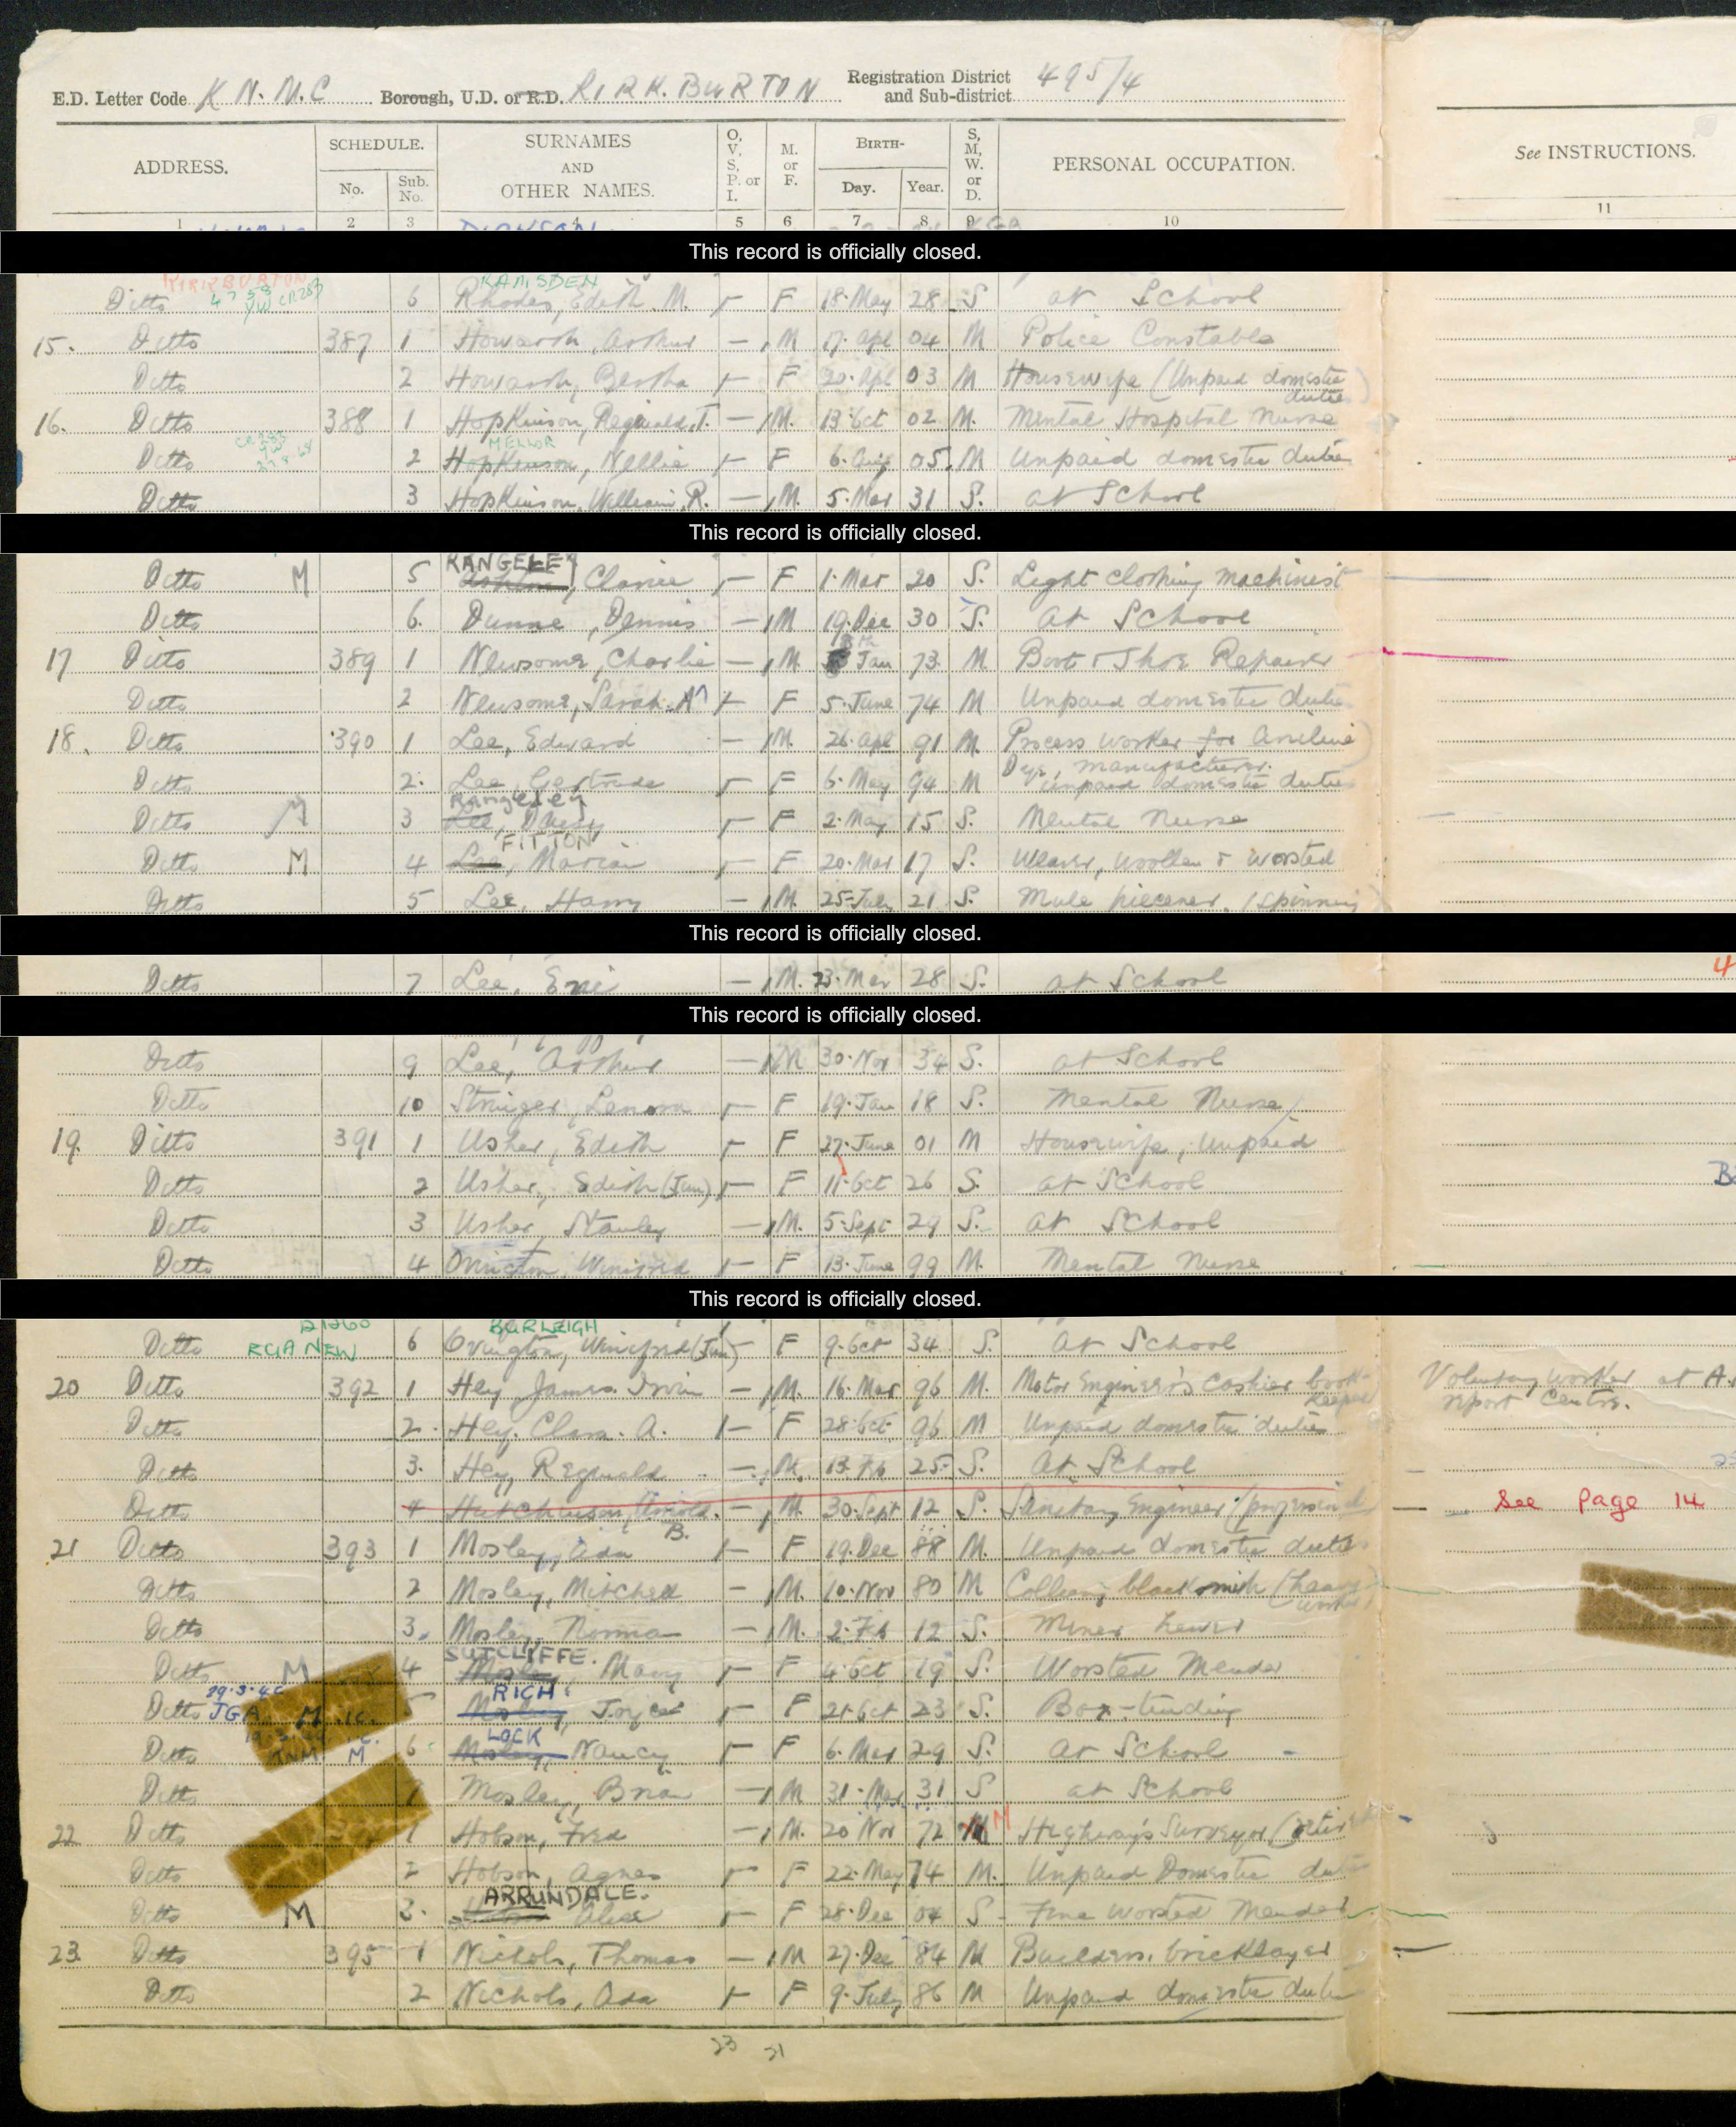 Registration District and Sub-district 495/4
E.D. Letter Code K N. M.C Borough, U.D. or R.D. KIRK. BURTON
ADDRESS. SCHEDULE. No. Sub. No. SURNAMES AND OTHER NAMES. O, V, S, P. or I. M. or F. BIRTH- Day. Year. S, M, W. or D. PERSONAL OCCUPATION. See INSTRUCTIONS.
1 2 3 4 5 6 7 8 9 10 11
This record is officially closed.
KIRKBURTON RAMSDEN
Ditto 6 Rhodes, Edith. M. F 18. May 28 S at School
15. Ditto 387 1 Howarth, Arthur — M 17. Apl 04 M Police Constable
Ditto 2 Howarth, Bertha F 20. Apl 03 M Housewife (Unpaid domestic duties)
16. Ditto 388 1 Hopkinson, Reginald. T. — M. 13 Oct 02 M. Mental Hospital Nurse
MELLOR
Ditto 2 Hopkinson, Nellie F 6. Aug 05. M Unpaid domestic duties
Ditto 3 Hopkinson, William. R. — M. 5. Mar 31 S. at School
This record is officially closed.
RANGELEY
Ditto M 5 Clarice F 1. Mar 20 S. Light clothing machinist
Ditto 6. Dunne, Dennis — M 19. Dec 30 S. at School
17 Ditto 389 1 Newsome, Charlie — M. Jan 73 M. Boot & Shoe Repairer
Ditto 2 Newsome, Sarah. A F 5. June 74 M Unpaid domestic duties
18. Ditto 390 1 Lee, Edward — M. 26. Apl 91 M. Process worker for Aniline
Dye, manufacturer.
Ditto 2. Lee, Gertrude F 6. May 94 M Unpaid domestic duties
Rangeley
Ditto M 3 Lee, F 2. May 15 S. Mental Nurse
FITTON
Ditto M 4 Lee, Marian F 20. Mar 17 S. Weaver, woollen & worsted
Ditto 5 Lee, Harry — M. 25. July 21 S. Mule piecener. (Spinning)
This record is officially closed.
Ditto 7 Lee, Eric — M. 23. Mar 28 S. at School 4
This record is officially closed.
Ditto 9 Lee, Arthur — M 30. Nov 34 S. at School
Ditto 10 Stringer, Lenora F 19. Jan 18 S. Mental Nurse
19. Ditto 391 1 Usher, Edith F 27. June 01 M Housewife, Unpaid
Ditto 2 Usher, Edith (Jun). F 11. Oct 26 S. at School
Ditto 3 Usher, Stanley — M. 5. Sept 29 S. at School
Ditto 4 Ovington, Winifred F 13. June 99 M. Mental Nurse
This record is officially closed.
BURLEIGH
Ditto NEW 6 Ovington, Winifred (Jun) — F 9. Oct 34 S. at School
20 Ditto 392 1 Hey, James. Irvin — M. 16. Mar 96 M. Motor Engineer's Cashier book-keeper Voluntary worker at A. report Centre.
Ditto 2. Hey. Clara. A. F 28 Oct 96 M Unpaid domestic duties
Ditto 3. Hey, Reginald — M. 13. Feb 25 S. at School
Ditto 4 Hutchinson, Arnold. B. — M. 30. Sept 12 S. Sanitary Engineer (professional — See Page 14
21 Ditto 393 1 Mosley, Ada F 19. Dec 88 M. Unpaid domestic duties
Ditto 2 Mosley, Mitchell — M. 10. Nov 80 M Colliery blacksmith (heavy worker)
Ditto 3. Mosley, Norman — M. 2. Feb 12 S. Miner hewer
SUTCLIFFE.
Ditto M 4 Mosley, Mary F 4. Oct 19 S. Worsted Mender
29.3.45 RICH
Ditto JGA M 5 Mosley, Joyce F 21. Oct 23 S. Box-tending
LOCK
Ditto KNM M 6 Mosley, Nancy F 6. Mar 29 S. at School
Ditto Mosley, Brian — M 31. Mar 31 S at School
22 Ditto 1 Hobson, Fred — M. 20 Nov 72 M Highways Surveyor (retired
Ditto 2 Hobson, Agnes F 22. May 74 M. Unpaid Domestic duties
ARRUNDALE.
Ditto M 3. Alice F 28. Dec 04 S Fine worsted Mender
23. Ditto 395 1 Nichols, Thomas — M 27. Dec 84 M Builders. bricklayer
Ditto 2 Nichols, Ada F 9. July 86 M Unpaid domestic duties
23 21